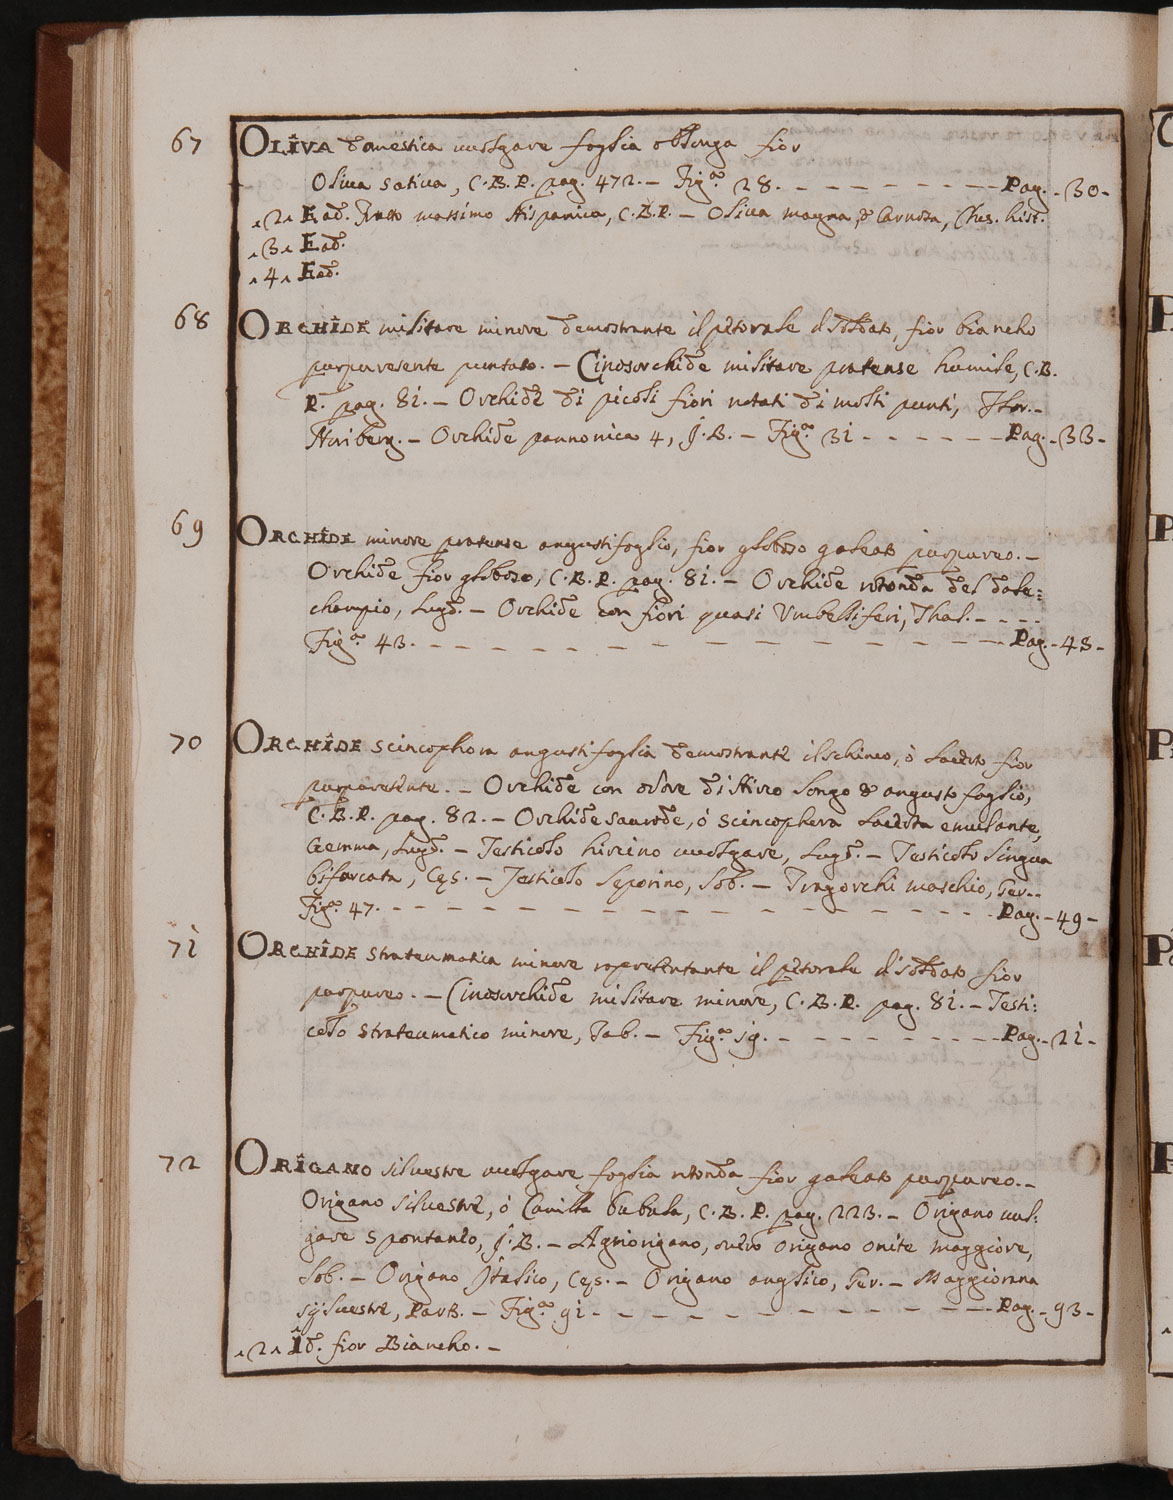 67 OLIVA domestica uulgare foglia oblonga fior
Oliua satiua, C.B.P. pag. 472.– Figa. 28. – – – – – – – – – Pag. - 30 -
.2. Ead. frutto massimo Hispanica, C.B.P. – Oliua magna, & Carnosa, Clus. hist.
.3. Ead.
.4. Ead.
68 ORCHIDE militare minore demostrante il petorale d'soldato, fior biancho
purpuresente puntato. – Cinosorchide militare pratense humile, C.B.
P. pag. 81. – Orchide di picoli fiori notati di molti punti, Hor.–
Nuiberg. – Orchide pannonica 4, J.B. – Figa. 31 - - - - - - Pag. - 33 -
69 ORCHIDE minore pratense angustifoglio, fior globoso galeato purpureo.–
Orchide fior globoso, C.B.P. pag. 81. – Orchide rotonda del dale:
champio, Lugd. – Orchide con fiori quasi Vmbelliferi, Thal. – - - -
Figa. 43. – – – – – – – – – – – – – – – Pag. - 48 -
70 ORCHIDE scincophora angustifoglia demostrante il schinco, ò Lacerto fior
purpuresente. – Orchide con odore di Hirco longo & angusto foglio,
C.B.P. pag. 82. – Orchide saurode, ó scincophora Lacerta emulante,
Gemma, Lugd. – Testicolo hircino uuolgare, Lugd. – Testicolo lingua
bifurcata, Cęs. – Testicolo Leporino, Lob. – Tragorchi maschio, Ger.–
Figa. 47. – – – – – – – – – – – – – – – Pag. - 49 -
71 ORCHIDE strateumatica minore rapresentante il petorale d'soldato fior
purpureo. – Cinosorchide militare minore, C.B.P. pag. 81. – Testi:
colo strateumatico minore, Tab. – Figa. 19. – – – – – – – – Pag. - 21 -
72 ORIGANO siluestre uuolgare foglia rotonda fior galeato purpureo.–
Origano siluestre, ó Cunilla bubula, C.B.P. pag. 223. – Origano uul:
gare spontaneo, J.B. – Agriorigano, ouero origano onite maggiore,
Lob. – Origano Italico, Cęs. – Origano anglico, Ger. – Maggiorana
syluestre, Park. – Figa. 91 - - - - - - - - - - - - Pag. - 93 -
.2. Id. fior Biancho. –